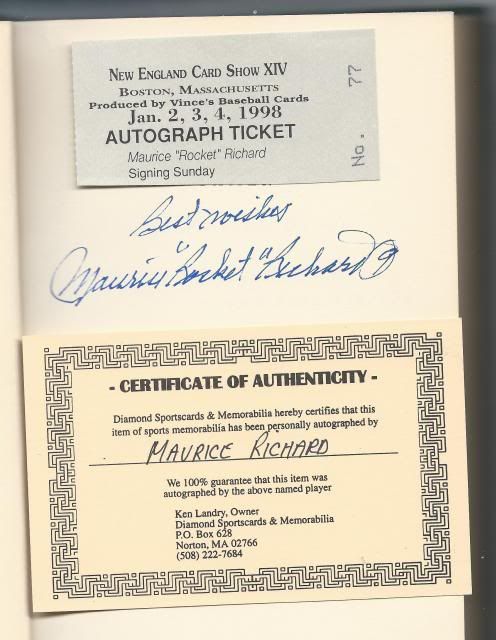 NEW ENGLAND CARD SHOW XIV
BOSTON, MASSACHUSETTS
Produced by Vince's Baseball Cards
Jan. 2, 3, 4, 1998
AUTOGRAPH TICKET
Maurice "Rocket" Richard
Signing Sunday
No. 77
Best wishes
Maurice "Rocket" Richard 9
- CERTIFICATE OF AUTHENTICITY -
Diamond Sportscards & Memorabilia hereby certifies that this
item of sports memorabilia has been personally autographed by
MAURICE RICHARD
We 100% guarantee that this item was
autographed by the above named player
Ken Landry, Owner
Diamond Sportscards & Memorabilia
P.O. Box 628
Norton, MA 02766
(508) 222-7684